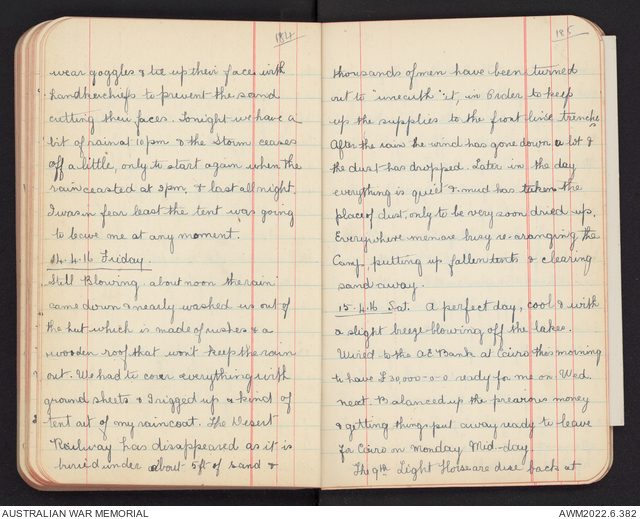 184
wear goggles & tie up their faces with
handkerchiefs to prevent the sand
cutting their faces. Tonight we have a
bit of rain at 10pm & the Storm ceases
off a little, only to start again when the
rain ceasted at 2pm, & last all night.
I was in fear least the tent was going
to leave me at any moment.
14.4.16 Friday
Still Blowing. about noon the rain
came down & nearly washed us out of
the hut which is made of rushes & a
wooden roof that won't keep the rain
out. We had to cover everything with
ground sheets & I rigged up a kind of
tent out of my raincoat. The Desert
Railway has disappeared as it is
buried under about 5ft of sand &
185
thousands of men have been turned
out to "unearth" it, in order to keep
up the supplies to the front line trenches
After the rain the wind has gone down a lot &
the dust has dropped. Later in the day
everything is quiet & mud has taken the
place of dust, only to be very soon dried up.
Everywhere men are busy re-aranging the
Camp, putting up fallen tents & clearing
sand away.
15.4.16 Sat. A perfect day, cool & with
a slight breeze blowing off the lake.
Wired to the A.E. Bank at Cairo this morning
to have £30,000-0-0 ready for me on Wed.
next. Balanced up the previous money
& getting things put away ready to leave
for Cairo on Monday Mid-day.
The 9th Light Horse are due back at
AUSTRALIAN WAR MEMORIAL
AWM2022.6.382